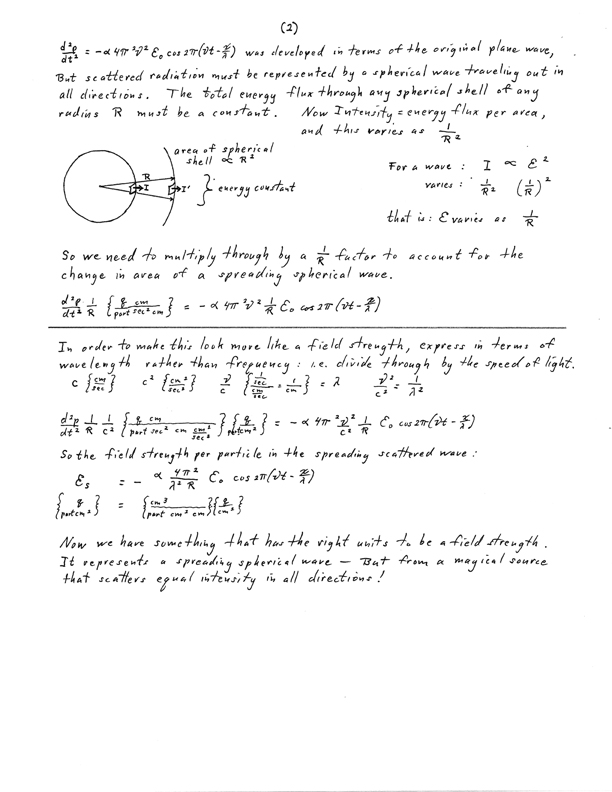 (2)
d²p/dt² = -α 4π²ν² ℰ₀ cos 2π(νt - x/λ) was developed in terms of the original plane wave,
But scattered radiation must be represented by a spherical wave traveling out in
all directions. The total energy flux through any spherical shell of any
radius R must be a constant. Now Intensity = energy flux per area,
and this varies as 1/R²
area of spherical
shell ∝ R²
R
I I' } energy constant
For a wave : I ∝ ℰ²
varies : 1/R² (1/R)²
that is : ℰ varies as 1/R
So we need to multiply through by a 1/R factor to account for the
change in area of a spreading spherical wave.
d²p/dt² 1/R {q cm / part sec² cm} = -α 4π²ν² 1/R ℰ₀ cos 2π(νt - x/λ)
In order to make this look more like a field strength, express in terms of
wavelength rather than frequency : i.e. divide through by the speed of light.
c {cm/sec} c² {cm²/sec²} ν/c {1/sec / cm/sec = 1/cm} = λ ν²/c² = 1/λ²
d²p/dt² 1/R 1/c² {q cm / part sec² cm cm²/sec²} {q / part cm²} = -α 4π² ν²/c² 1/R ℰ₀ cos 2π(νt - x/λ)
So the field strength per particle in the spreading scattered wave :
ℰs = - α 4π²/λ²R ℰ₀ cos 2π(νt - x/λ)
{q / part cm²} = {cm³ / part cm² cm} {q / cm²}
Now we have something that has the right units to be a field strength.
It represents a spreading spherical wave — But from a magical source
that scatters equal intensity in all directions!